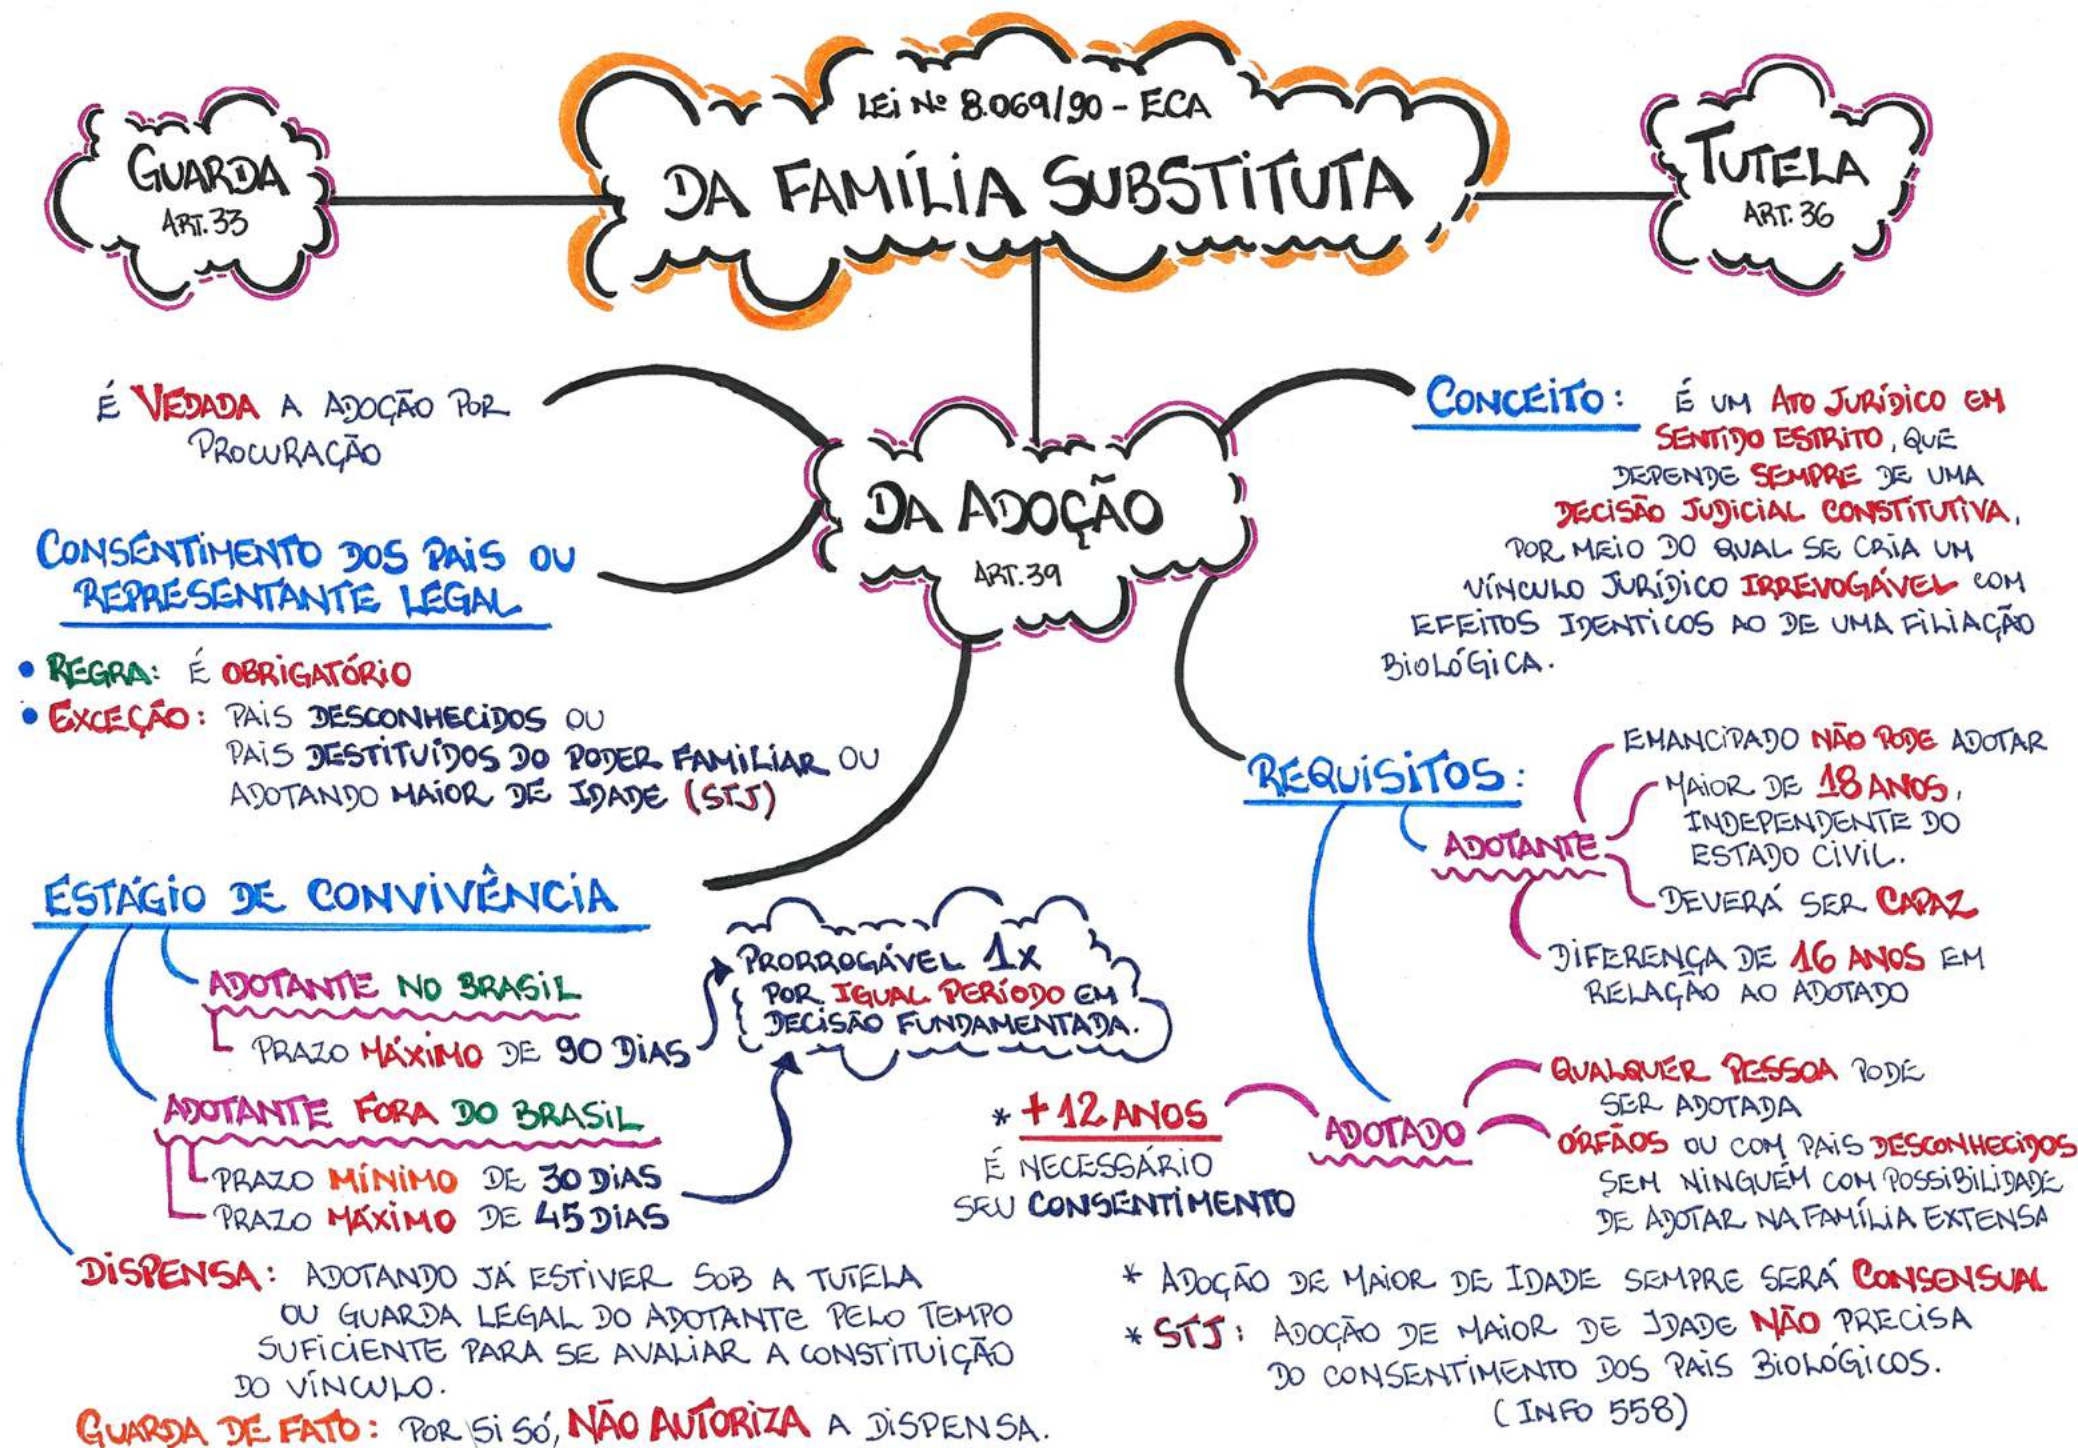 LEI Nº 8.069/90 - ECA
DA FAMÍLIA SUBSTITUTA
GUARDA
ART. 33
TUTELA
ART. 36
DA ADOÇÃO
ART. 39
É VEDADA A ADOÇÃO POR
PROCURAÇÃO
CONSENTIMENTO DOS PAIS OU
REPRESENTANTE LEGAL
• REGRA: É OBRIGATÓRIO
• EXCEÇÃO: PAIS DESCONHECIDOS OU
PAIS DESTITUÍDOS DO PODER FAMILIAR OU
ADOTANDO MAIOR DE IDADE (STJ)
ESTÁGIO DE CONVIVÊNCIA
ADOTANTE NO BRASIL
PRAZO MÁXIMO DE 90 DIAS
PRORROGÁVEL 1X
POR IGUAL PERÍODO EM
DECISÃO FUNDAMENTADA.
ADOTANTE FORA DO BRASIL
PRAZO MÍNIMO DE 30 DIAS
PRAZO MÁXIMO DE 45 DIAS
DISPENSA: ADOTANDO JÁ ESTIVER SOB A TUTELA
OU GUARDA LEGAL DO ADOTANTE PELO TEMPO
SUFICIENTE PARA SE AVALIAR A CONSTITUIÇÃO
DO VÍNCULO.
GUARDA DE FATO: POR SI SÓ, NÃO AUTORIZA A DISPENSA.
CONCEITO: É UM ATO JURÍDICO EM
SENTIDO ESTRITO, QUE
DEPENDE SEMPRE DE UMA
DECISÃO JUDICIAL CONSTITUTIVA,
POR MEIO DO QUAL SE CRIA UM
VÍNCULO JURÍDICO IRREVOGÁVEL COM
EFEITOS IDENTICOS AO DE UMA FILIAÇÃO
BIOLÓGICA.
REQUISITOS:
ADOTANTE
EMANCIPADO NÃO PODE ADOTAR
MAIOR DE 18 ANOS,
INDEPENDENTE DO
ESTADO CIVIL.
DEVERÁ SER CAPAZ
DIFERENÇA DE 16 ANOS EM
RELAÇÃO AO ADOTADO
ADOTADO
QUALQUER PESSOA PODE
SER ADOTADA
ÓRFÃOS OU COM PAIS DESCONHECIDOS
SEM NINGUÉM COM POSSIBILIDADE
DE ADOTAR NA FAMÍLIA EXTENSA
* +12 ANOS
É NECESSÁRIO
SEU CONSENTIMENTO
* ADOÇÃO DE MAIOR DE IDADE SEMPRE SERÁ CONSENSUAL
* STJ: ADOÇÃO DE MAIOR DE IDADE NÃO PRECISA
DO CONSENTIMENTO DOS PAIS BIOLÓGICOS.
(INFO 558)